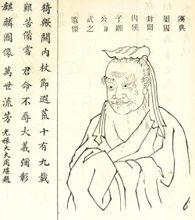 漢典
屬國
封關
内侯
子卿
公諱
武之
遺像
猗歟關内杖節遐荒十有九載
艱苦備嘗君命不辱大義彌彰
麒麟圖像萬世流芳
光祿大夫周堪題